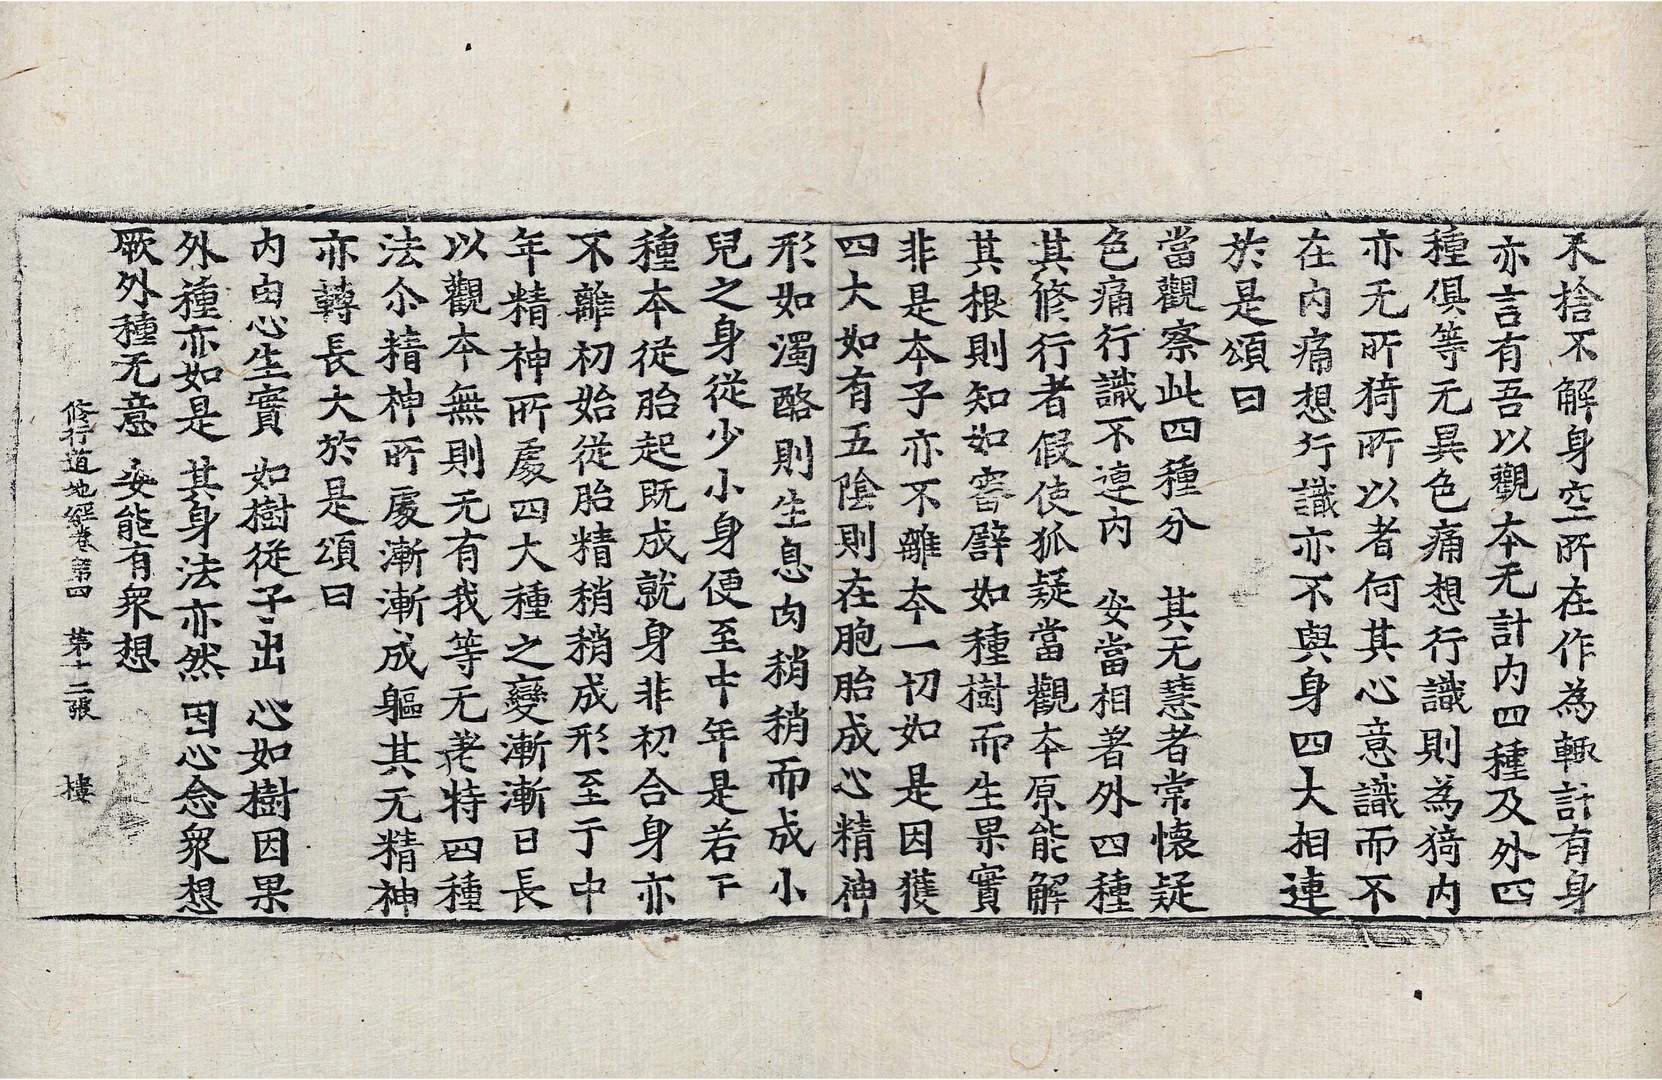 禾捨不解身空所在作為輙計有身
亦言有吾以觀本无計内四種及外四
種俱等无異色痛想行識則為猗内
亦无所猗所以者何其心意識而不
在内痛想行識亦不與身四大相連
於是頌曰
當觀察此四種分　其无慧者常懷疑
色痛行識不連内　安當相著外四種
其脩行者假使狐疑當觀本原能解
其根則知如審譬如種樹而生果實
非是本子亦不離本一切如是因獲
四大如有五陰則在胞胎成心精神
形如濁酪則生息肉稍稍而成小
兒之身從少小身便至中年是若干
種本從胎起既成就身非初合身亦
不離初始從胎精稍稍成形至于中
年精神所處四大種之變漸漸日長
以觀本無則无有我等无差特四種
法尒精神所處漸漸成軀其无精神
亦轉長大於是頌曰
内由心生實　如樹從子出　心如樹因果
外種亦如是　其身法亦然　因心念衆想
厥外種无意　安能有衆想
脩行道地經卷第四　第十二張　樓